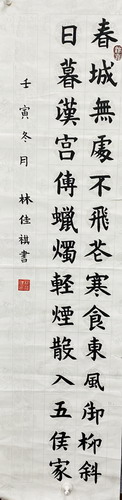 春城無處不飛花寒食東風御柳斜
日暮漢宮傳蠟燭輕煙散入五侯家
壬寅冬月林佳祺書